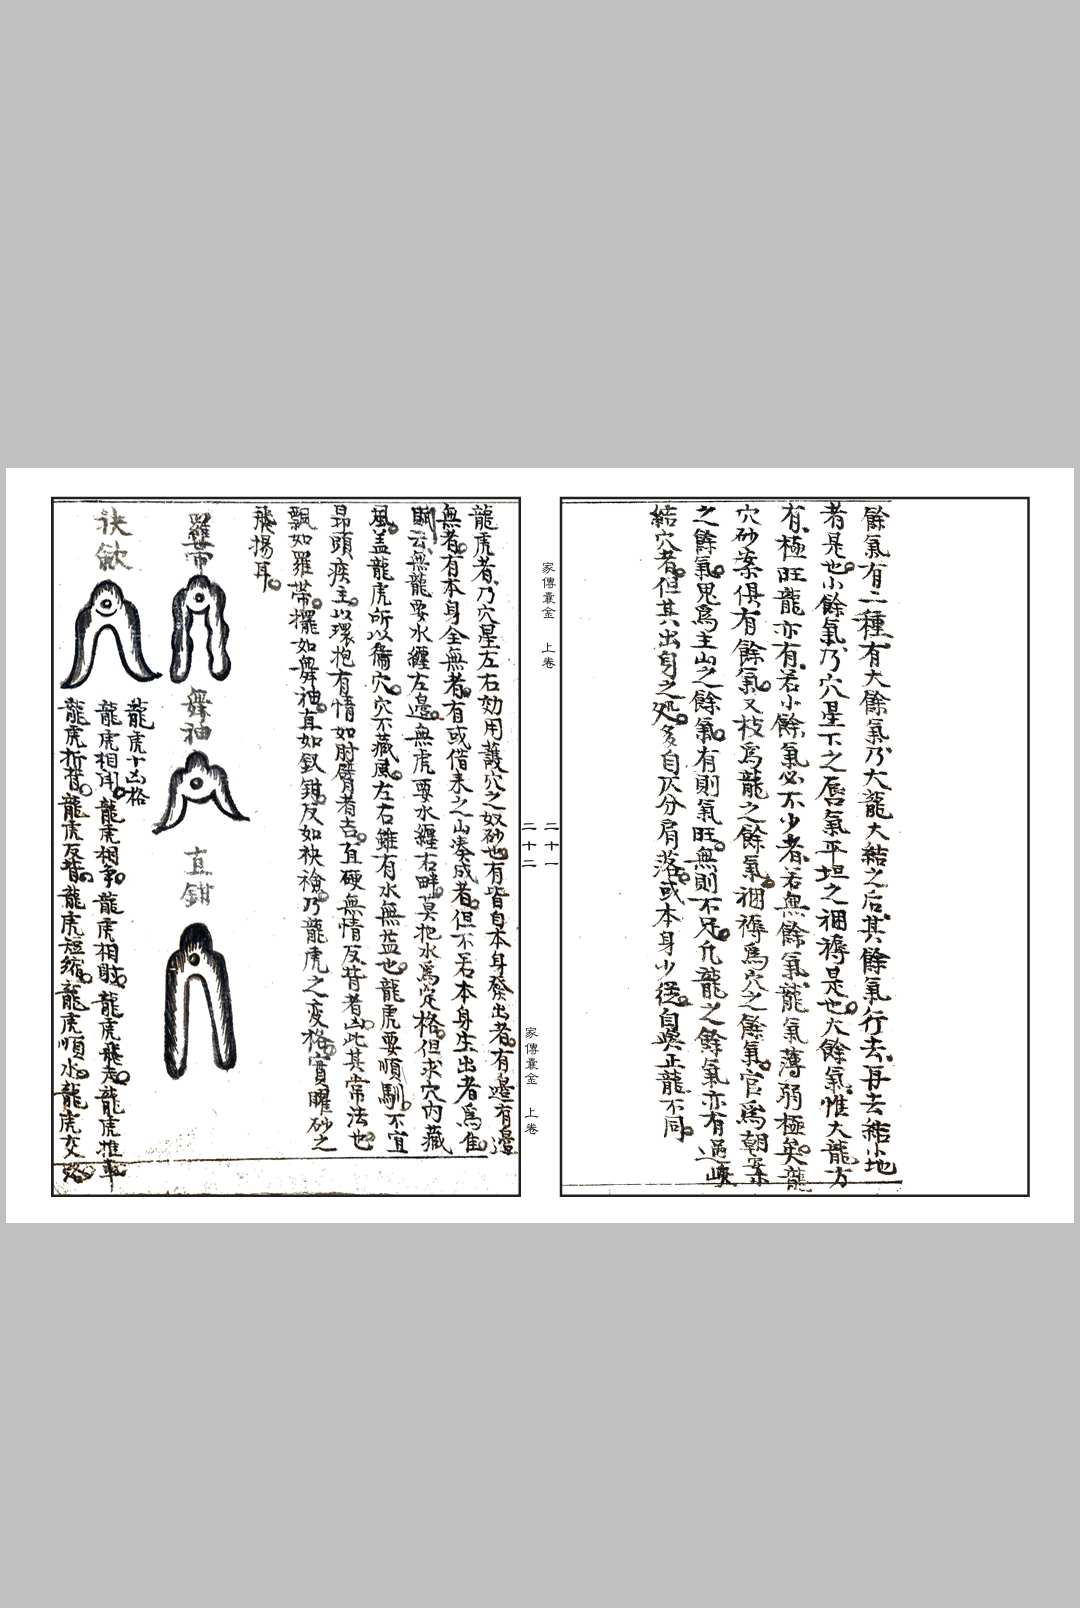 餘氣有二種有大餘氣乃大龍大結之后其餘氣行去再去結小地
者是也小餘氣乃穴星下之唇氣平坦之裀褥是也大餘氣惟大龍方
有極旺龍亦有若小餘氣必不少者若無餘氣龍氣薄弱極矣龍
穴砂案俱有餘氣又枝為龍之餘氣裀褥為穴之餘氣官為朝案
之餘氣鬼為主山之餘氣有則氣旺無則不足凡龍之餘氣亦有過峽
結穴者但其出身之処多自仄分肩落或本身少從自與正龍不同
家傳囊金 上卷
二十一
二十二
家傳囊金 上卷
龍虎者乃穴星左右効用護穴之奴砂也有皆自本身發出者有邊有邊
無者有本身全無者有或借來之山湊成者但不若本身生出者為佳
賦云無龍要水纏左邊無虎要水纏右畔莫把水為定格但求穴內藏
風盖龍虎所以衛穴穴不藏風左右雖有水無益也龍虎要順馴不宜
昂頭疾主以環抱有情如肘臂者吉直硬無情反背者凶此其常法也
飄如羅帶擺如舞袖直如釵鉗反如袂襝乃龍虎之変格官曜砂之
飛揚耳
羅帶
舞袖
直鉗
袂歛
龍虎十凶格
龍虎相鬥龍虎相争龍虎相射龍虎飛走龍虎推車
龍虎折臂龍虎反背龍虎短縮龍虎順水龍虎交路